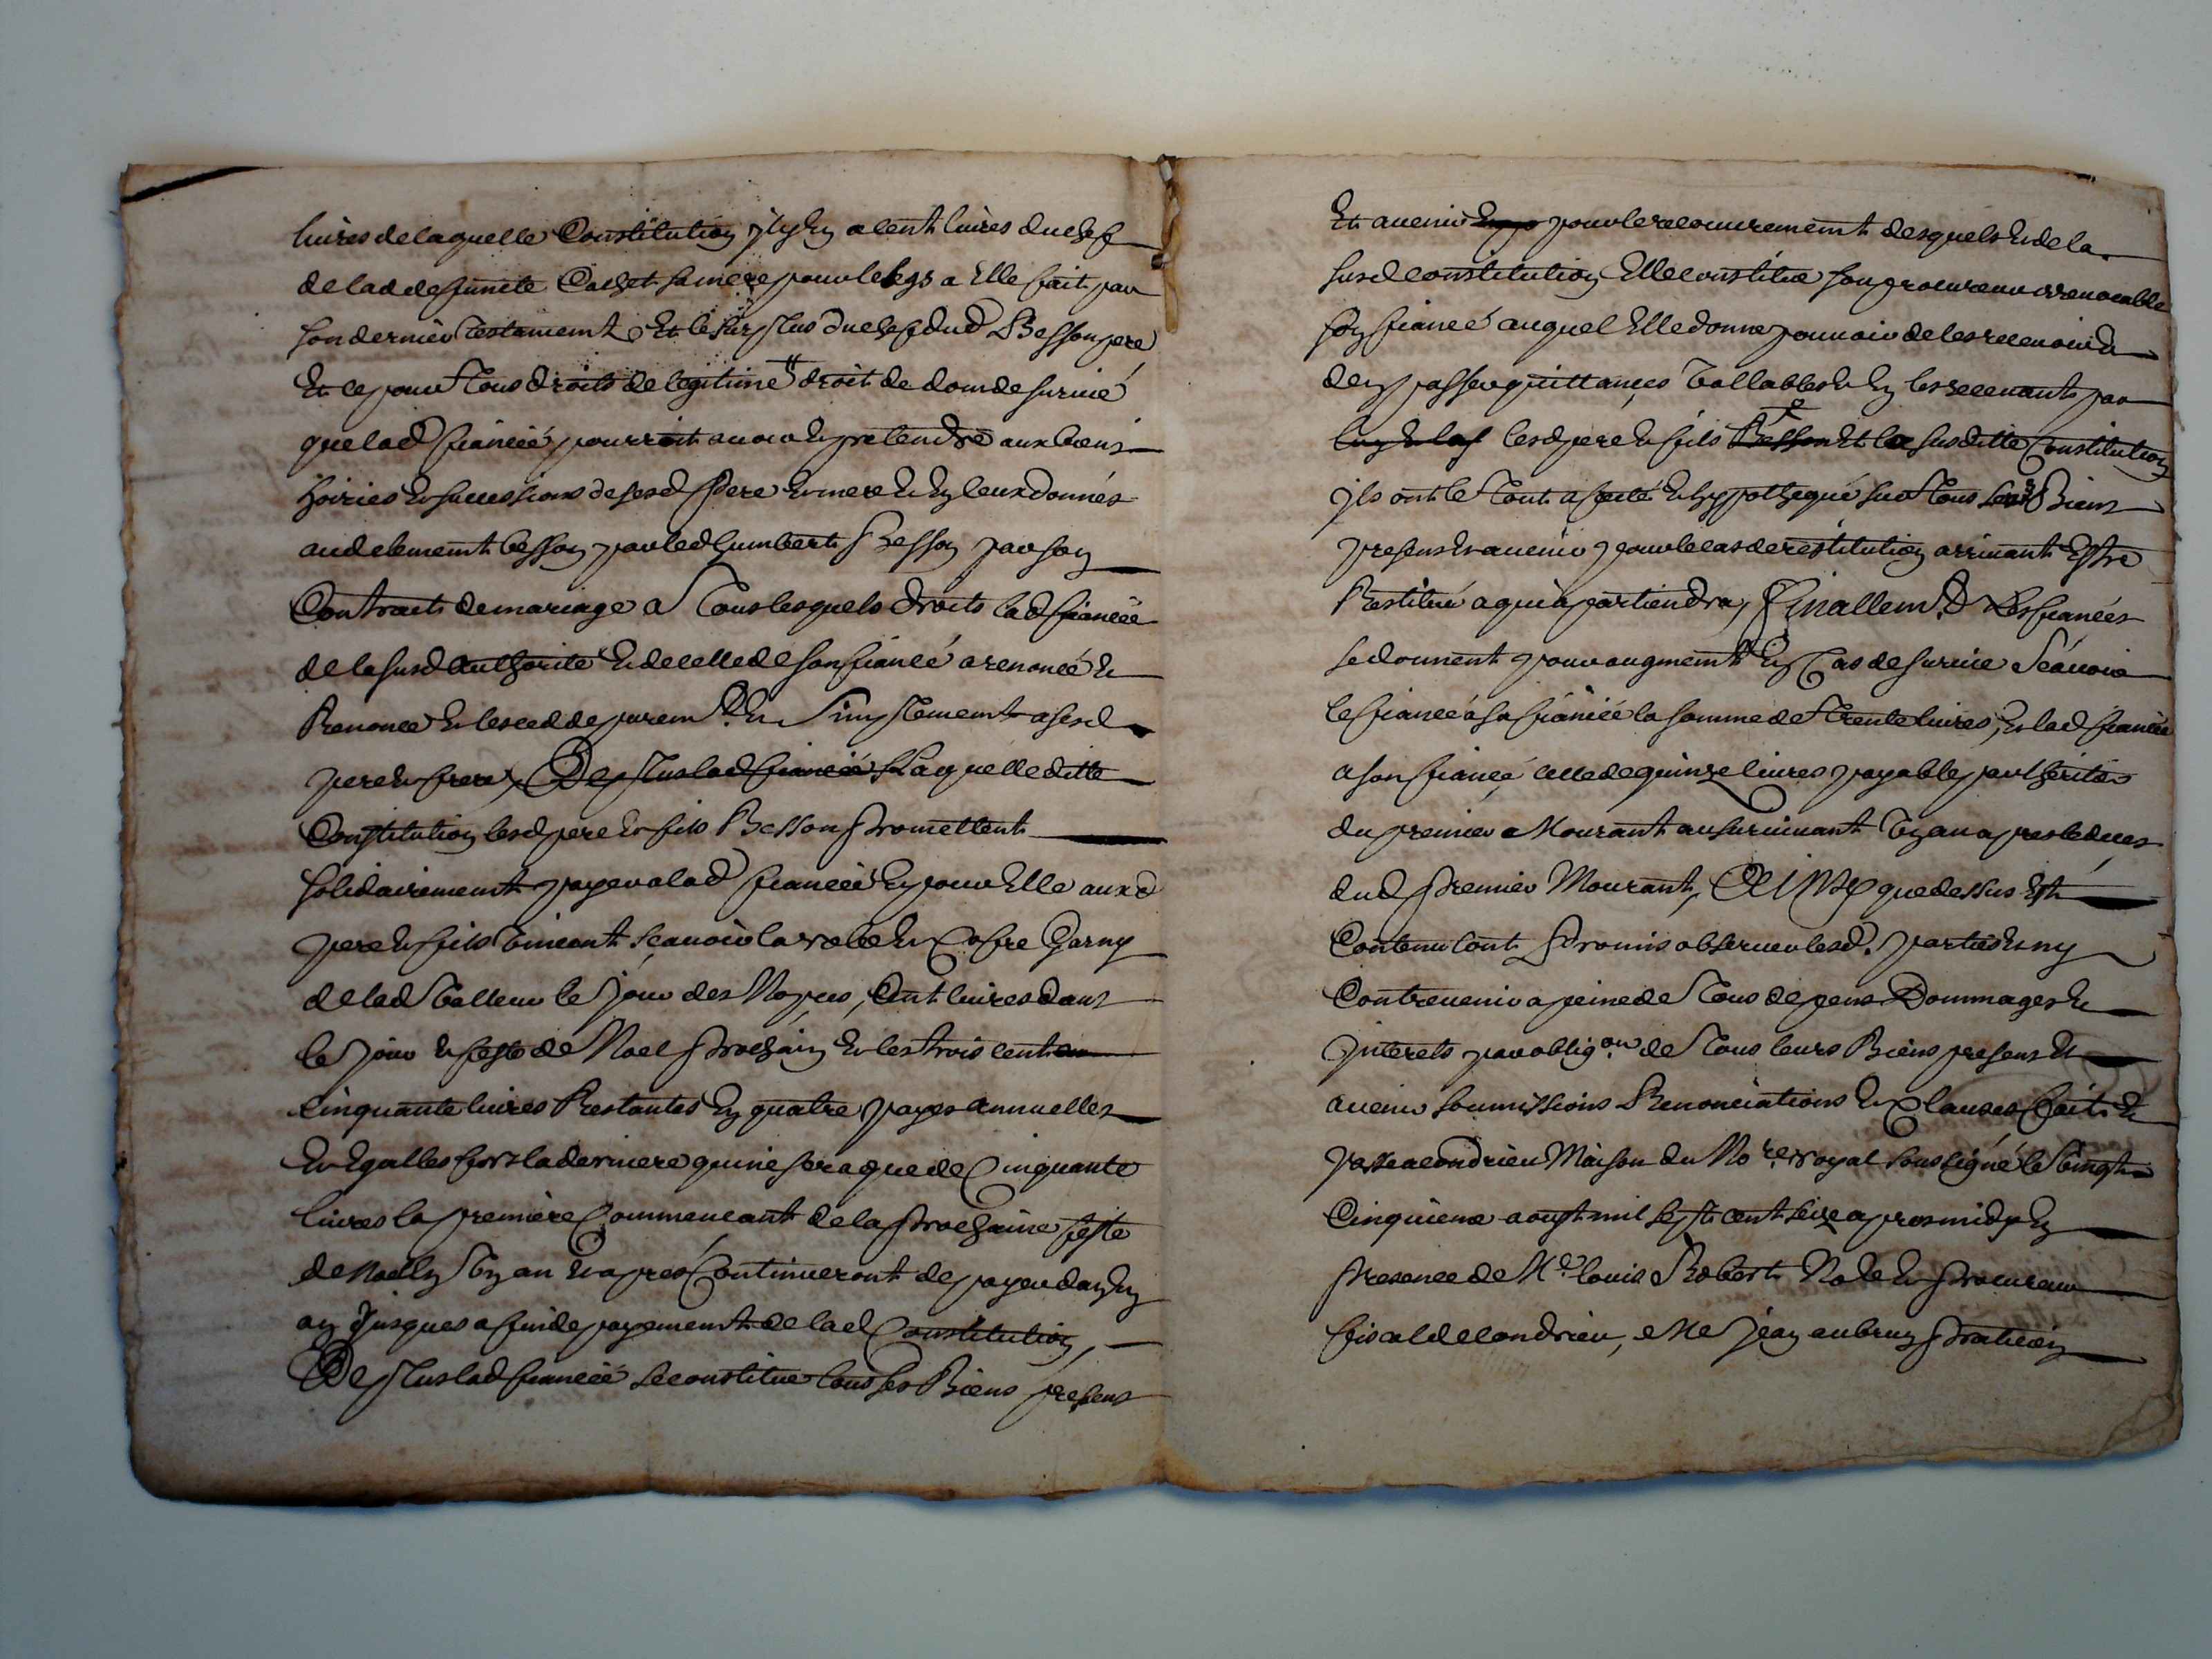 livres de laquelle Constitution il y en a cent livres du chef
de lad defuncte Cachet sa mere pour le legs a Elle fait par
son dernier Testament & Et le surplus du chef dud Besson pere
Et ce pour Tous droits de legitime # droit de dom de survie
que lad fiancée pourroit avoir et pretendre aux biens
hoiries et successions de sesd Pere et mere et en ceux donnés
aud clement besson par led humbert Besson par son
Contract de mariage a Tous lesquels droits lad fiancée
de la susd authorité et de celle de son fiancé a renoncé et
Renonce et les cedde purem.t et Simplement a sesd
pere et frere, De plus lad fiancée Laquelle ditte
Constitution lesd pere et fils Besson Promettent
solidairement payer a lad fiancée et pour Elle auxd
pere et fils Vincent scavoir la robe et Cofre Garny
de lad Valleur le jour des Nopces, Cent livres dans
le jour et feste de Noel Prochain et les trois cent
cinquante livres Restantes en quatre payes annuelles
et Egalles fors la derniere qui ne sera que de Cinquante
livres la premiere Commencant de la Prochaine feste
de Noel en Un an et apres Continueront de payer d'an en
an Jusques a fin de payement de lad Constitution,
De plus lad fiancée se constitue tous ses Biens presens
Et avenir pour le recouvrement desquels et de la
susd constitution Elle constitue son procureur irrevocable
son fiancé auquel Elle donne pouvoir de les recevoir et
d'en passer quittances Vallables et en les recevant par
lesd pere et fils Besson Et la susditte Constitution
Ils ont le Tout asseuté et hypothequé sur Tous leurs Biens
presens et avenir pour le cas de restitution arrivant Estre
Restitué a qui apartiendra, Finallem.t Les fiancés
se donnent pour augment En Cas de survie Scavoir
le fiancé a sa fiancée la somme de Trente livres, et lad fiancée
a son fiancé celle de quinze livres payable par l'heritier
du premier Mourant au survivant Un an apres le deces
dud Premier Mourant, Ainsy que dessus Est
Contenu l'ont Promis observer lesd. parties et ny
Contrevenir a peine de Tous depens Dommages et
Interets par oblig.on de Tous leurs Biens presens et
avenir soumissions Renonciations et Clauses fait et
passé a condrieu Maison du No.re royal soussigné le Vingt
Cinquieme aoust mil sept cent seize apres midy en
Presence de M.e louis Robert No.re et Procureur
fiscal de condrieu, et Me Jean aubruy Praticien